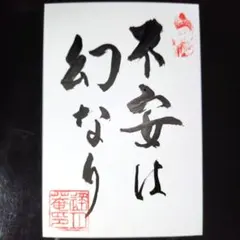 不安は
幻なり